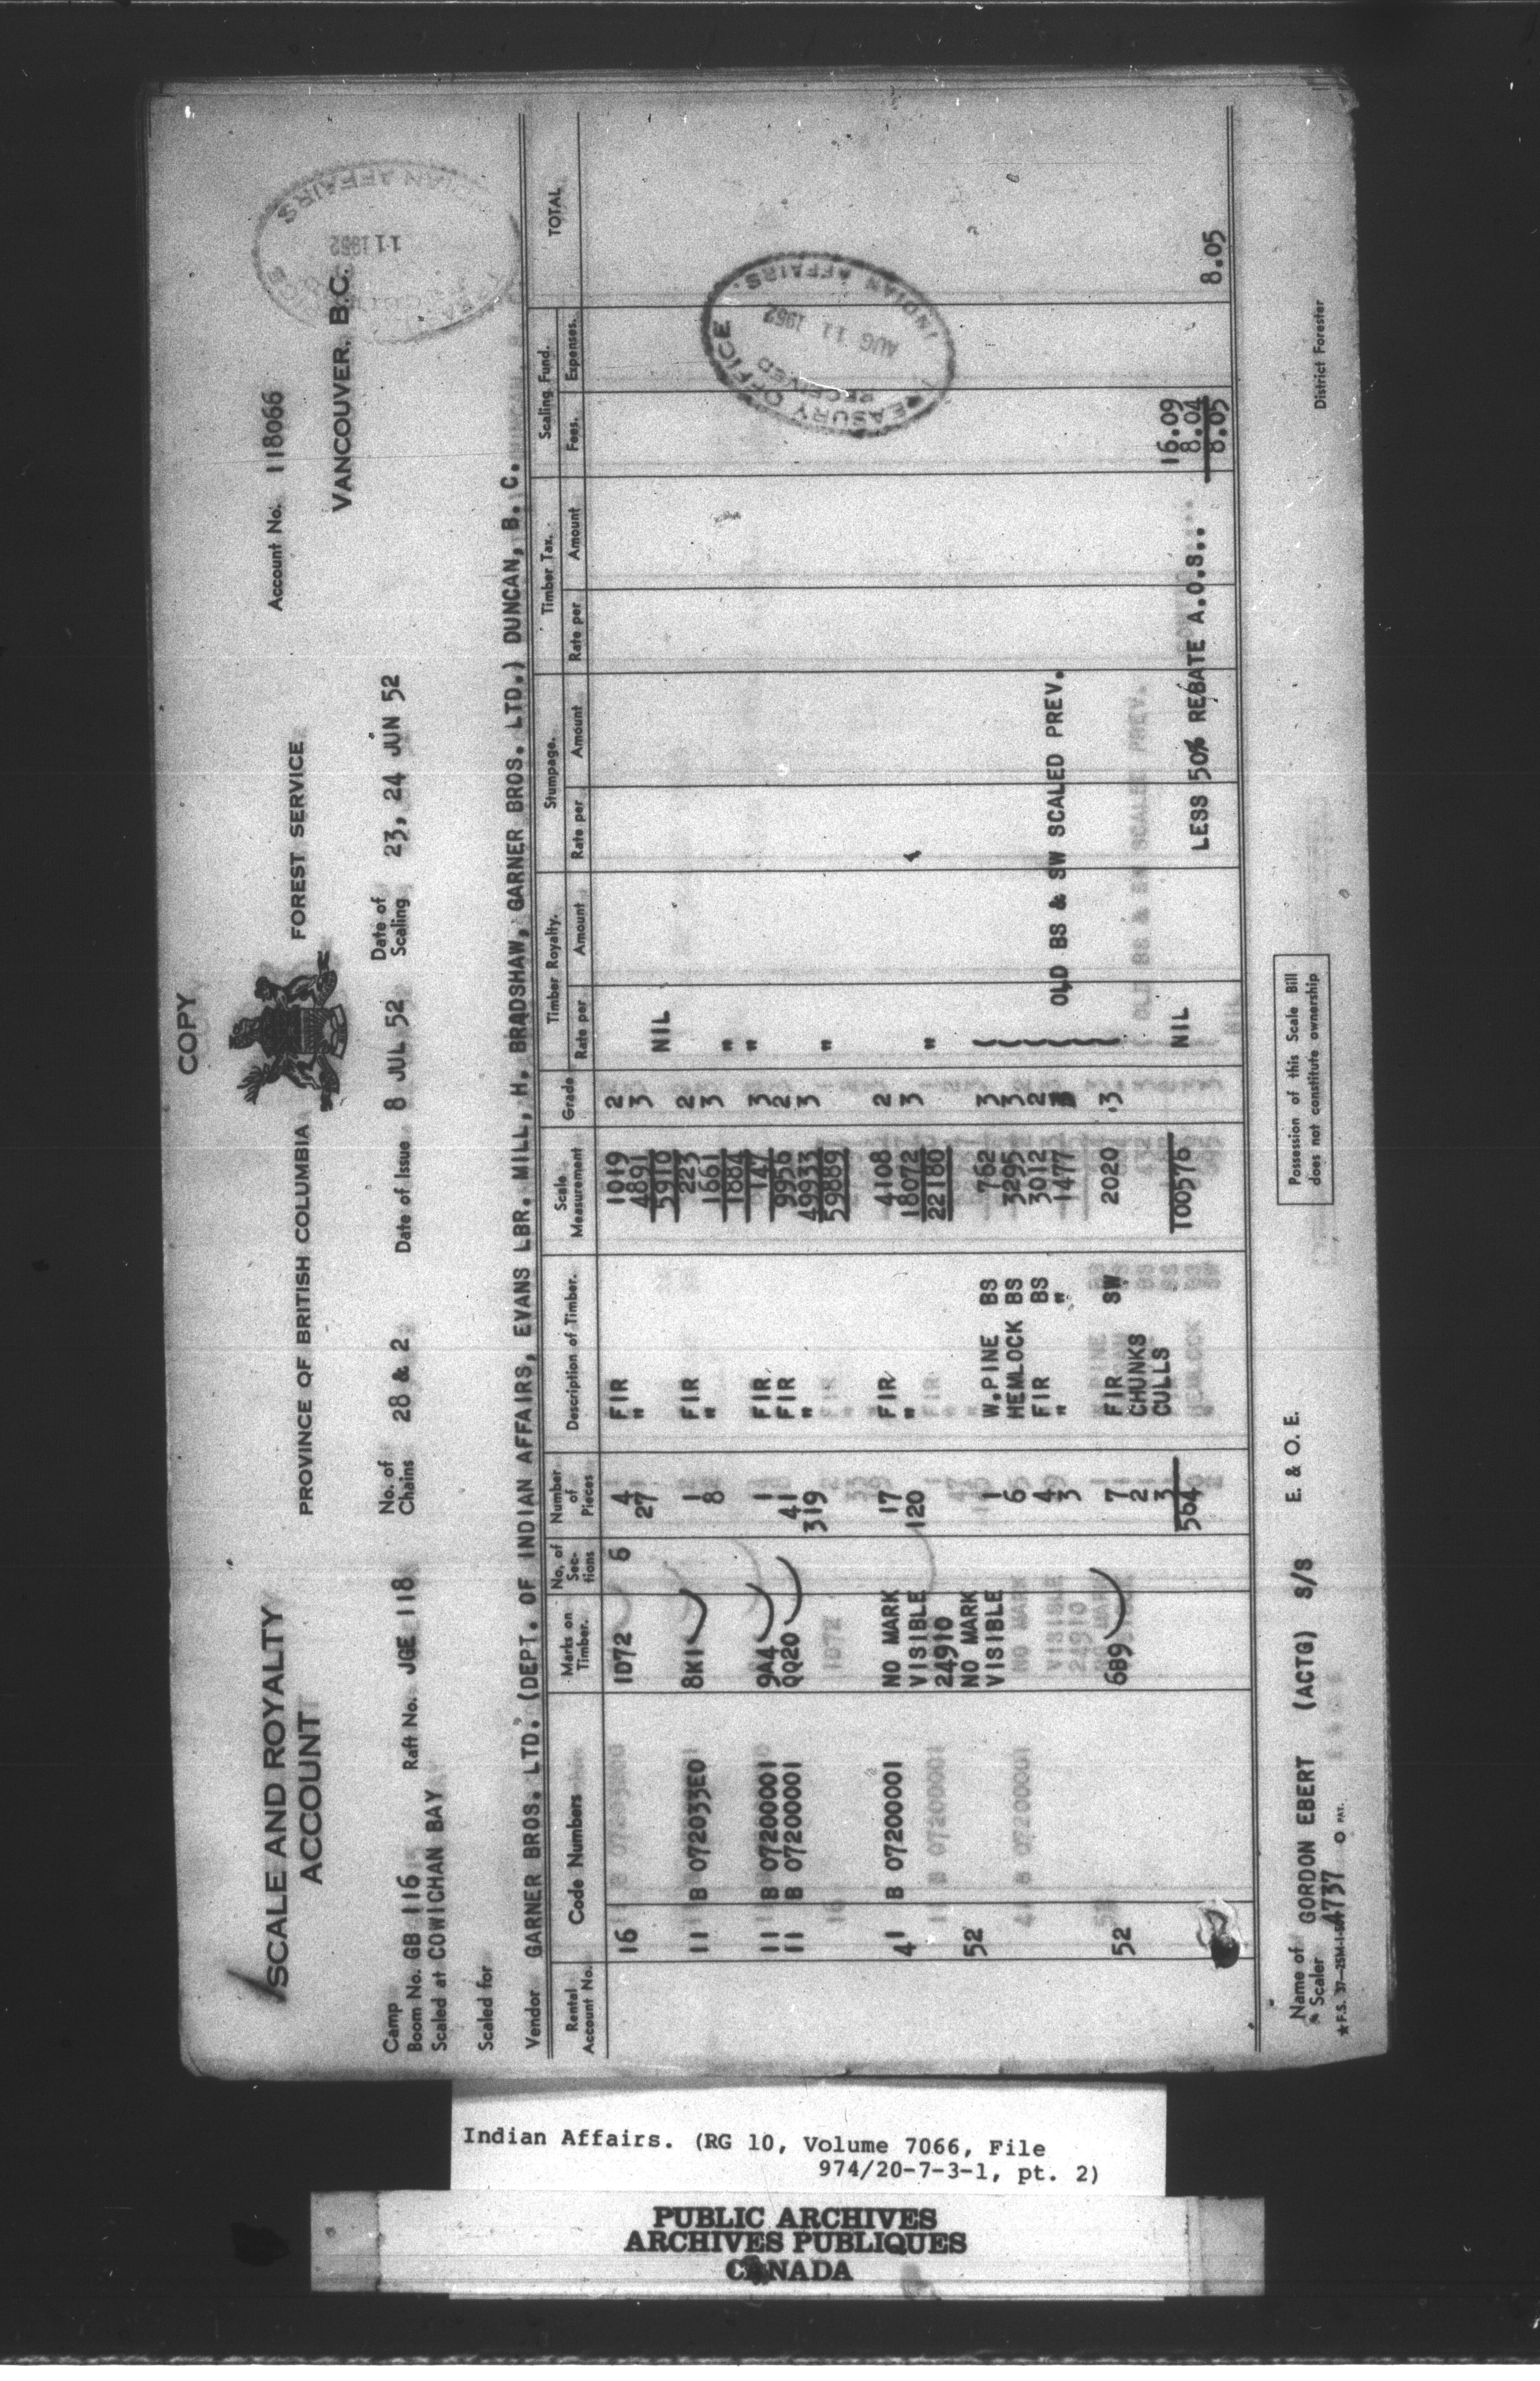 COPY
SCALE AND ROYALTY ACCOUNT
PROVINCE OF BRITISH COLUMBIA FOREST SERVICE
Account No. 118066
VANCOUVER, B.C.
Camp
No. of Chains 28 & 2
Date of Issue 8 JUL 52
Date of Scaling 23, 24 JUN 52
Boom No. GB 116 Raft No. JGE 118
Scaled at COWICHAN BAY
Scaled for
Vendor GARNER BROS. LTD. (DEPT. OF INDIAN AFFAIRS, EVANS LBR. MILL, H. BRADSHAW, GARNER BROS. LTD.) DUNCAN, B. C.
Rental Account No. Code Numbers Marks on Timber. No. of Sections Number of Pieces Description of Timber. Scale Measurement Grade Timber Royalty. Rate per Amount Stumpage. Rate per Amount Timber Tax. Rate per Amount Scaling Fund. Fees. Expenses. TOTAL
16 1D72 6 4 FIR 1019 2
27 " 4891 3
5910 NIL
11 B 072033E0 8K1 1 FIR 223 2
8 " 1661 3
1884 "
11 B 07200001 9A4 1 FIR 147 3 "
11 B 07200001 QQ20 41 FIR 9956 2
319 " 49933 3
59889 "
41 B 07200001 NO MARK 17 FIR 4108 2
VISIBLE 120 " 18072 3
24910 22180 "
52 NO MARK
VISIBLE 1 W.PINE BS 762 3
6 HEMLOCK BS 3295 3
4 FIR BS 3012 2
3 " " 1477
OLD BS & SW SCALED PREV.
52 6B9 7 FIR SW 2020 3
2 CHUNKS
3 CULLS
564 100576 NIL 16.09
LESS 50% REBATE A.O.S.. 8.04
8.05 8.05
TREASURY OFFICE
RECEIVED
AUG 11 1952
INDIAN AFFAIRS
11 1952
INDIAN AFFAIRS
Name of Scaler GORDON EBERT (ACTG) S/S
4737
E. & O. E.
Possession of this Scale Bill
does not constitute ownership
District Forester
PAT.
Indian Affairs. (RG 10, Volume 7066, File
974/20-7-3-1, pt. 2)
PUBLIC ARCHIVES
ARCHIVES PUBLIQUES
CANADA